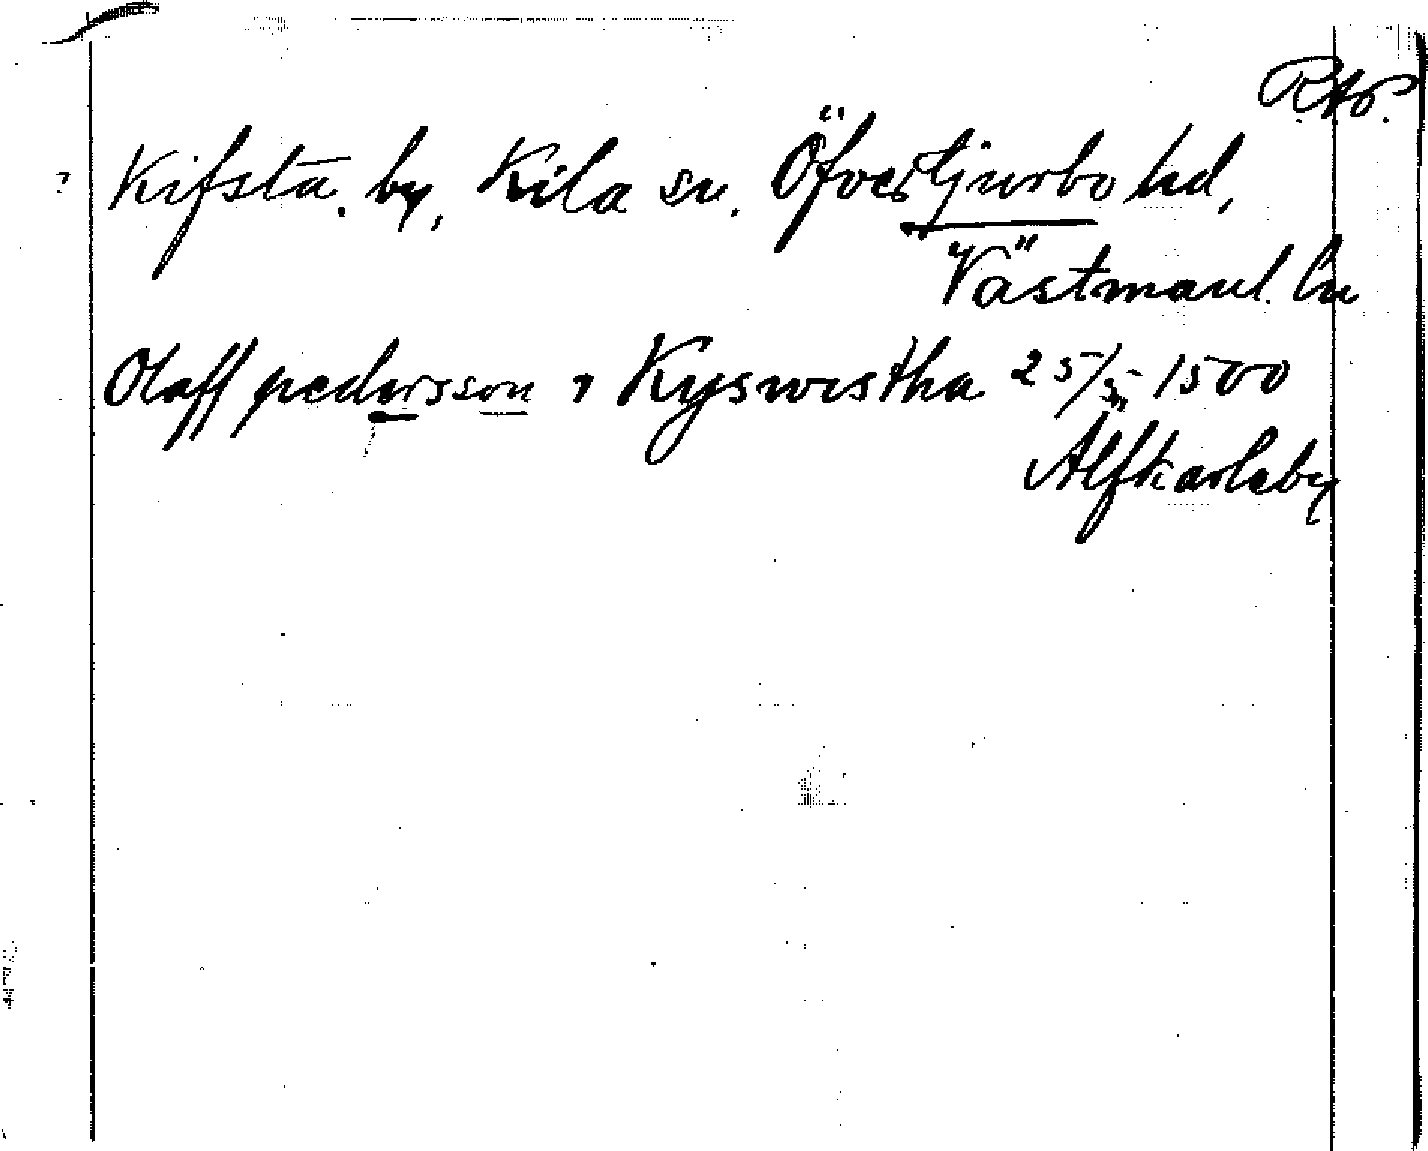 RAp.
? Kifsta. by, Kila sn. Öfvertjurbo hd,
Västmanl. län
Olaff pedersson i Kyswistha 25/5 1500
Älfkarleby